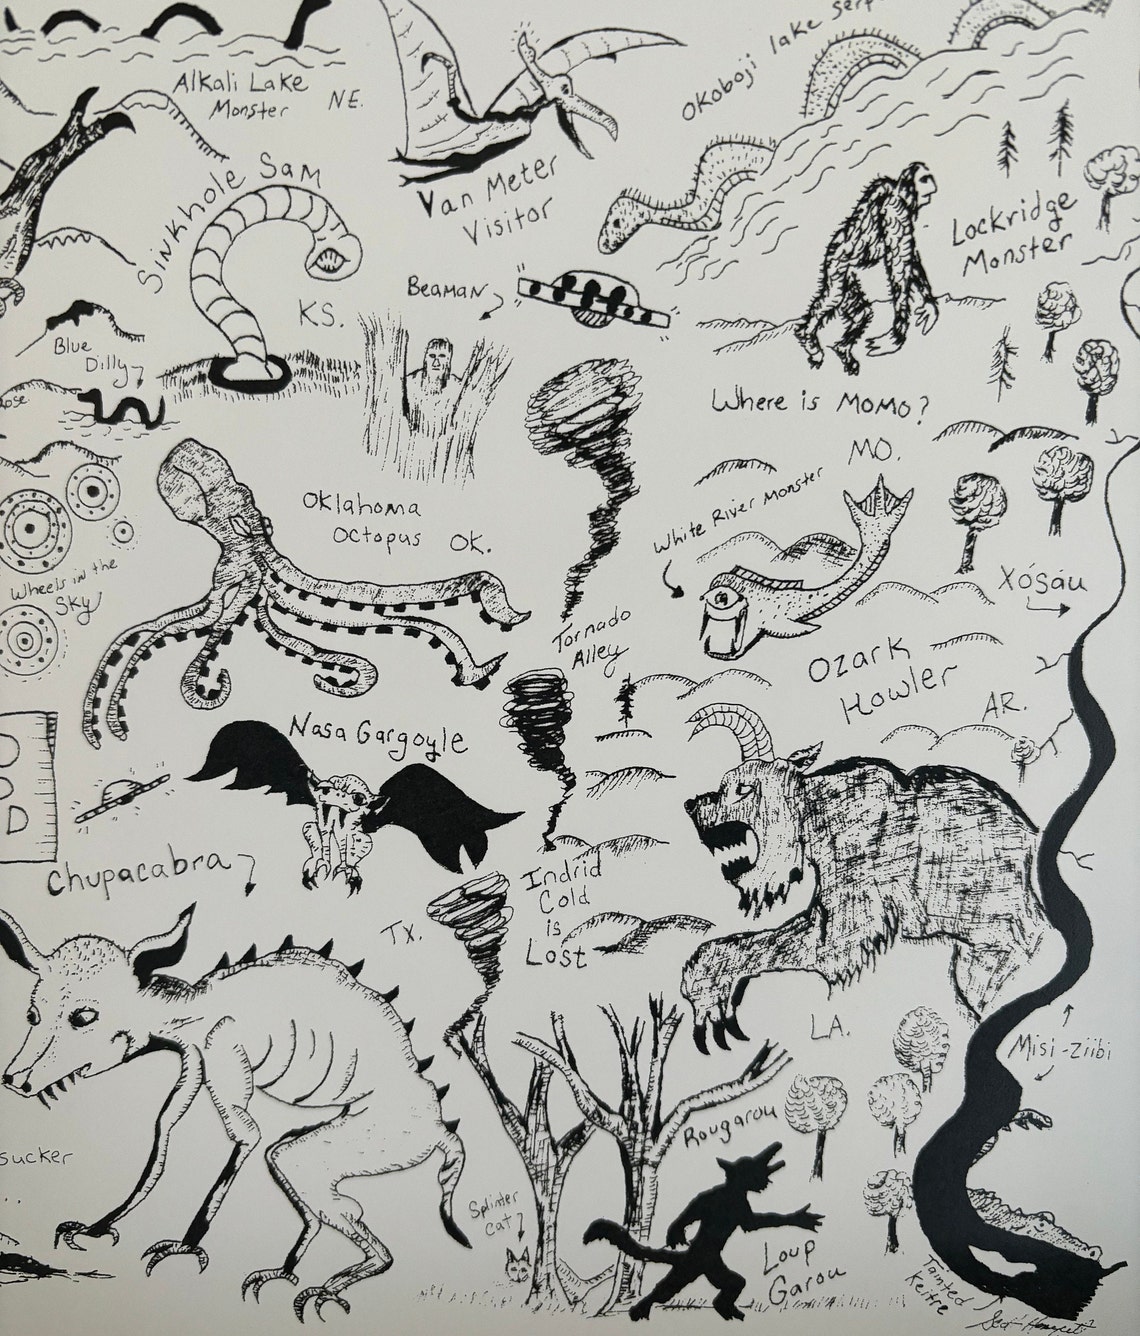 Alkali Lake
Monster
NE.
Okoboji lake
Van Meter
Visitor
Sinkhole Sam
KS.
Lockridge
Monster
Beaman
Blue
Dilly
Where is MOMO?
MO.
White River Monster
Oklahoma
Octopus OK.
Wheels in the
Sky
Xósáu
Tornado
Alley
Ozark
Howler
AR.
Nasa Gargoyle
Chupacabra
TX.
Indrid
Cold
is
Lost
LA.
Misi-ziibi
Rougarou
sucker
...
Splinter
Cat
Loup
Garou
Tainted
Keitre